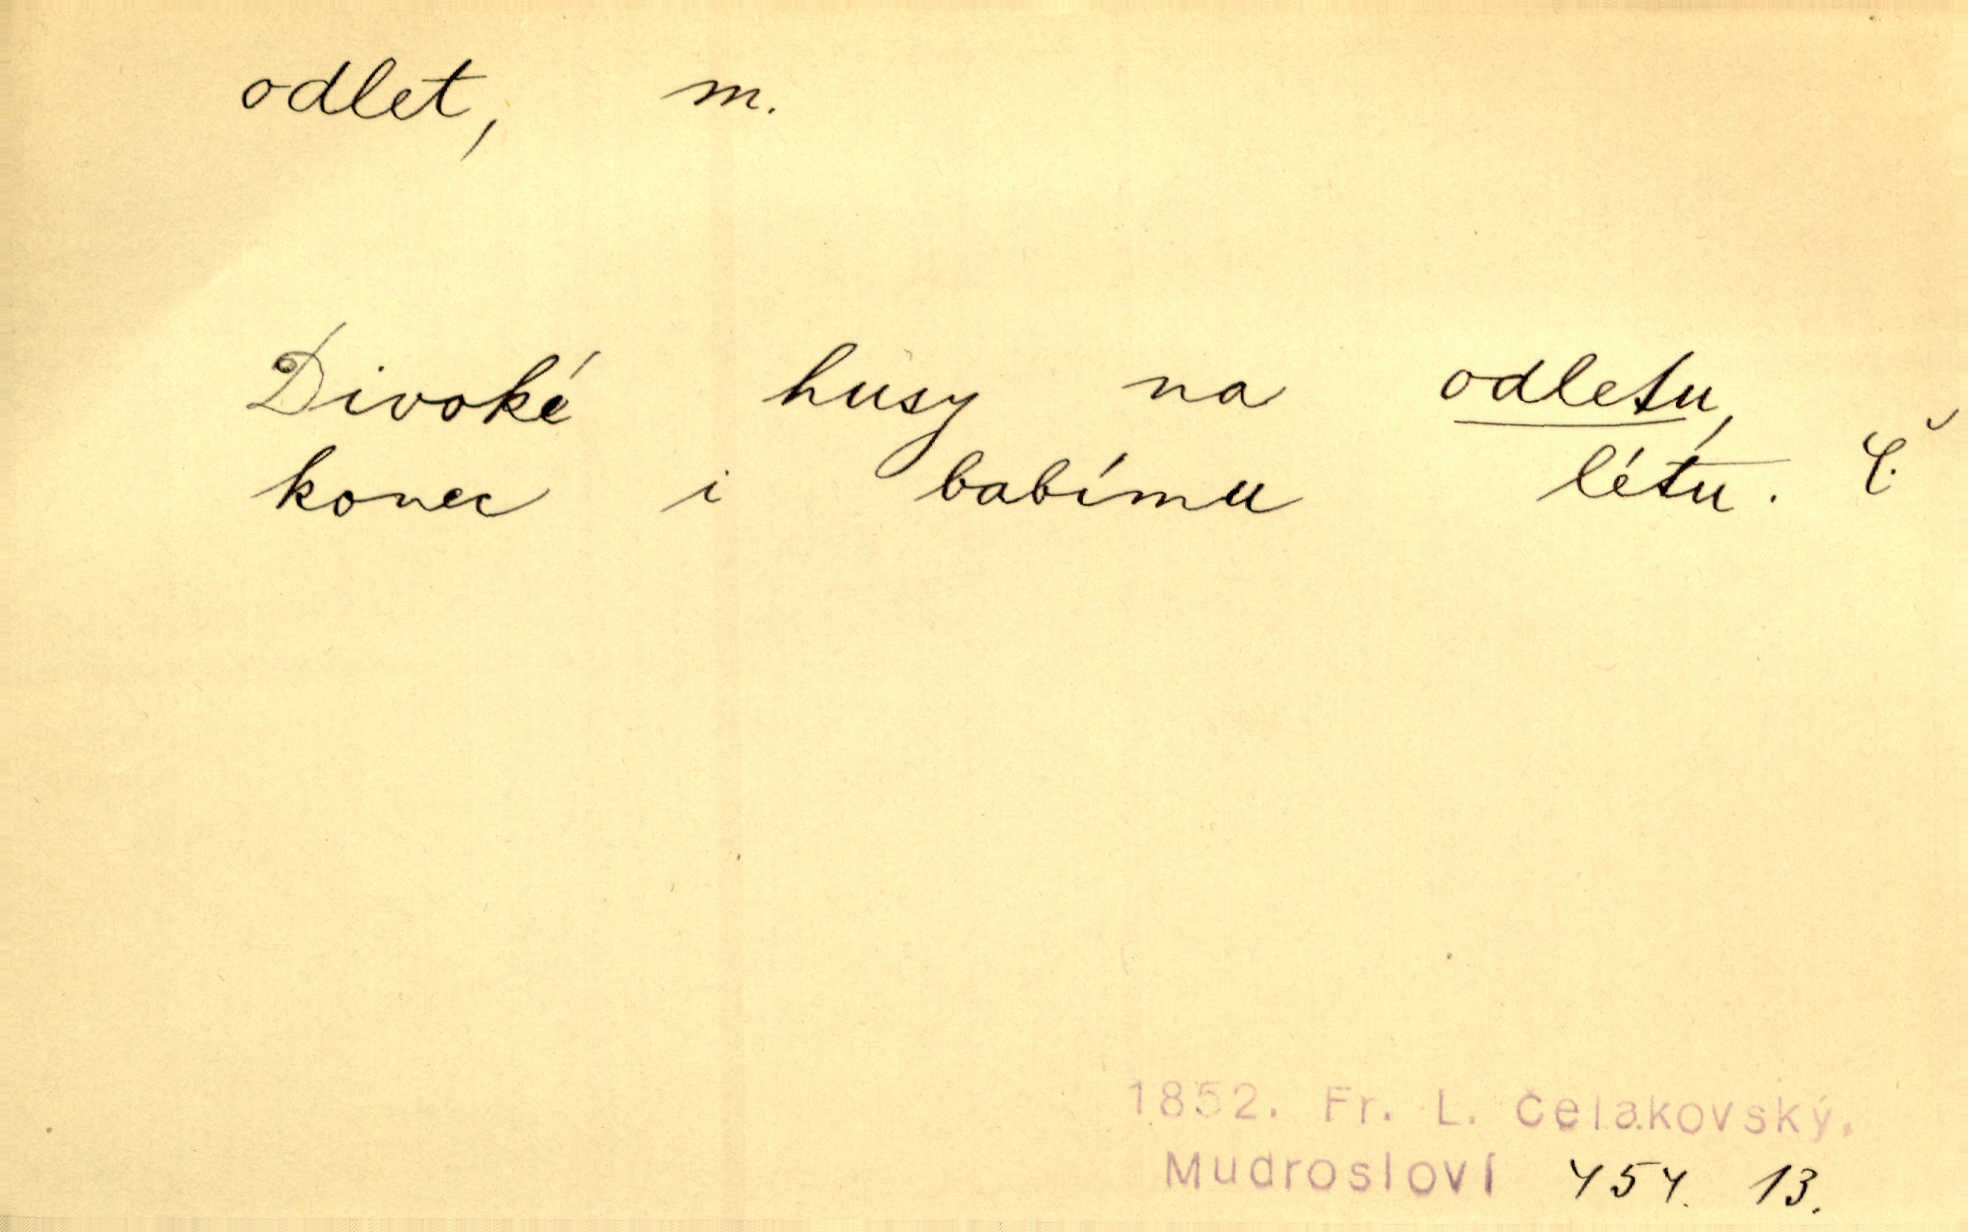 odlet, m.
Divoké husy na odletu,
konec i babímu létu. Č.
1852. Fr. L. Čelakovský.
Mudrosloví 454. 13.